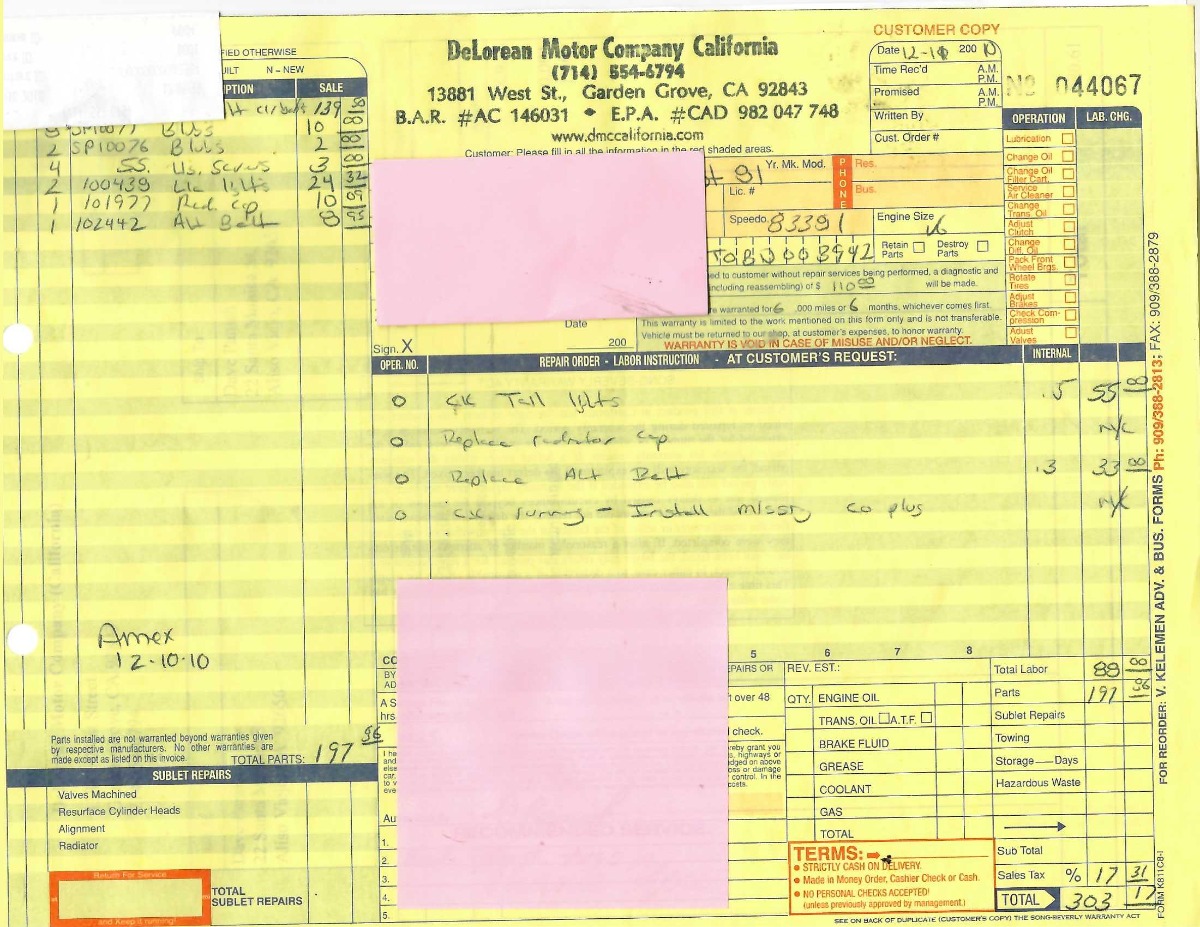 CUSTOMER COPY
DeLorean Motor Company California
(714) 554-6794
13881 West St., Garden Grove, CA 92843
B.A.R. #AC 146031 • E.P.A. #CAD 982 047 748
www.dmccalifornia.com
Customer: Please fill in all the information in the red shaded areas.
Date 12-10 200 10
Time Rec'd A.M. P.M.
Promised A.M. P.M.
Written By
Cust. Order #
No 044067
FIED OTHERWISE
UILT N - NEW
PTION SALE
139 50
SP10077 Blubs 10 00
2 SP10076 Blubs 2 00
4 SS. Lic. Screws 3 00
2 100439 Lic lights 24 32
1 101977 Rad cap 10 09
1 102442 Alt Belt 8 95
81 Yr. Mk. Mod.
Lic. #
PHONE
Res.
Bus.
Speedo. 83391
Engine Size V6
Retain Parts Destroy Parts
ed to customer without repair services being performed, a diagnostic and
(including reassembling) of $ 110 00 will be made.
re warranted for 6 ,000 miles or 6 months, whichever comes first.
This warranty is limited to the work mentioned on this form only and is not transferable.
Vehicle must be returned to our shop, at customer's expenses, to honor warranty.
WARRANTY IS VOID IN CASE OF MISUSE AND/OR NEGLECT.
Sign. X Date 200
OPERATION LAB. CHG.
Lubrication
Change Oil
Change Oil Filter Cart.
Service Air Cleaner
Change Trans. Oil
Adjust Clutch
Change Diff. Oil
Pack Front Wheel Brgs.
Rotate Tires
Adjust Brakes
Check Compression
Adjust Valves
OPER. NO. REPAIR ORDER - LABOR INSTRUCTION - AT CUSTOMER'S REQUEST: INTERNAL
O CK Tail lights .5 55 00
O Replace radiator cap N/C
O Replace Alt Belt .3 33 00
O CK running - Install missing co plug N/C
Amex
12-10-10
Parts installed are not warranted beyond warranties given
by respective manufacturers. No other warranties are
made except as listed on this invoice.
TOTAL PARTS: 197 86
SUBLET REPAIRS
Valves Machined
Resurface Cylinder Heads
Alignment
Radiator
Return For Service
and Keep it running!
TOTAL SUBLET REPAIRS
5 6 7 8
EPAIRS OR
REV. EST.:
t over 48
check.
QTY. ENGINE OIL
TRANS. OIL A.T.F.
BRAKE FLUID
GREASE
COOLANT
GAS
TOTAL
Total Labor 88 00
Parts 197 86
Sublet Repairs
Towing
Storage — Days
Hazardous Waste
Sub Total
Sales Tax % 17 31
TOTAL 303 17
TERMS:
• STRICTLY CASH ON DELIVERY.
• Made in Money Order, Cashier Check or Cash.
• NO PERSONAL CHECKS ACCEPTED!
(unless previously approved by management.)
SEE ON BACK OF DUPLICATE (CUSTOMER'S COPY) THE SONG-BEVERLY WARRANTY ACT
FOR REORDER: V. KELEMEN ADV. & BUS. FORMS Ph: 909/388-2813; FAX: 909/388-2879
FORM K811C8-I